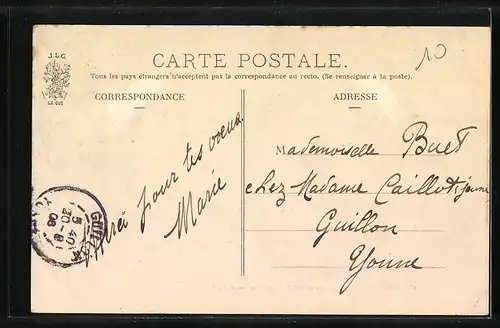 J.L.C.
CARTE POSTALE.
10
Tous les pays étrangers n'acceptent pas la correspondance au recto. (Se renseigner à la poste).
CORRESPONDANCE
ADRESSE
Merci pour tes voeux
Marie
Mademoiselle Buet
chez Madame Caillot jeune
Guillon
Yonne
5 40
20-8
06